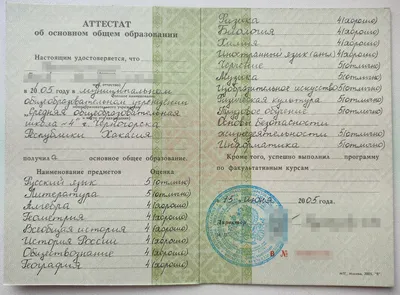 АТТЕСТАТ
об основном общем образовании
Настоящий удостоверяется, что
в 2005 году в муниципальном
общеобразовательном учреждении
"Средняя общеобразовательная
школа № 4" г. Черногорска
Республики Хакасия
получила основное общее образование.
Наименование предметов Оценка
Русский язык 5 (отлично)
Литература 5 (отлично)
Алгебра 4 (хорошо)
Геометрия 4 (хорошо)
Всеобщая история 4 (хорошо)
История России 4 (хорошо)
Обществознание 4 (хорошо)
География 4 (хорошо)
Физика 4 (хорошо)
Биология 4 (хорошо)
Химия 4 (хорошо)
Иностранный язык (англ) 4 (хорошо)
Черчение 5 (отлично)
Музыка 5 (отлично)
Изобразительное искусство 5 (отлично)
Физическая культура 5 (отлично)
Трудовое обучение 5 (отлично)
Основы безопасности
жизнедеятельности 5 (отлично)
Информатика 5 (отлично)
Кроме того, успешно выполнил программу
по факультативным курсам
15 июня 2005 года.
Директор
№